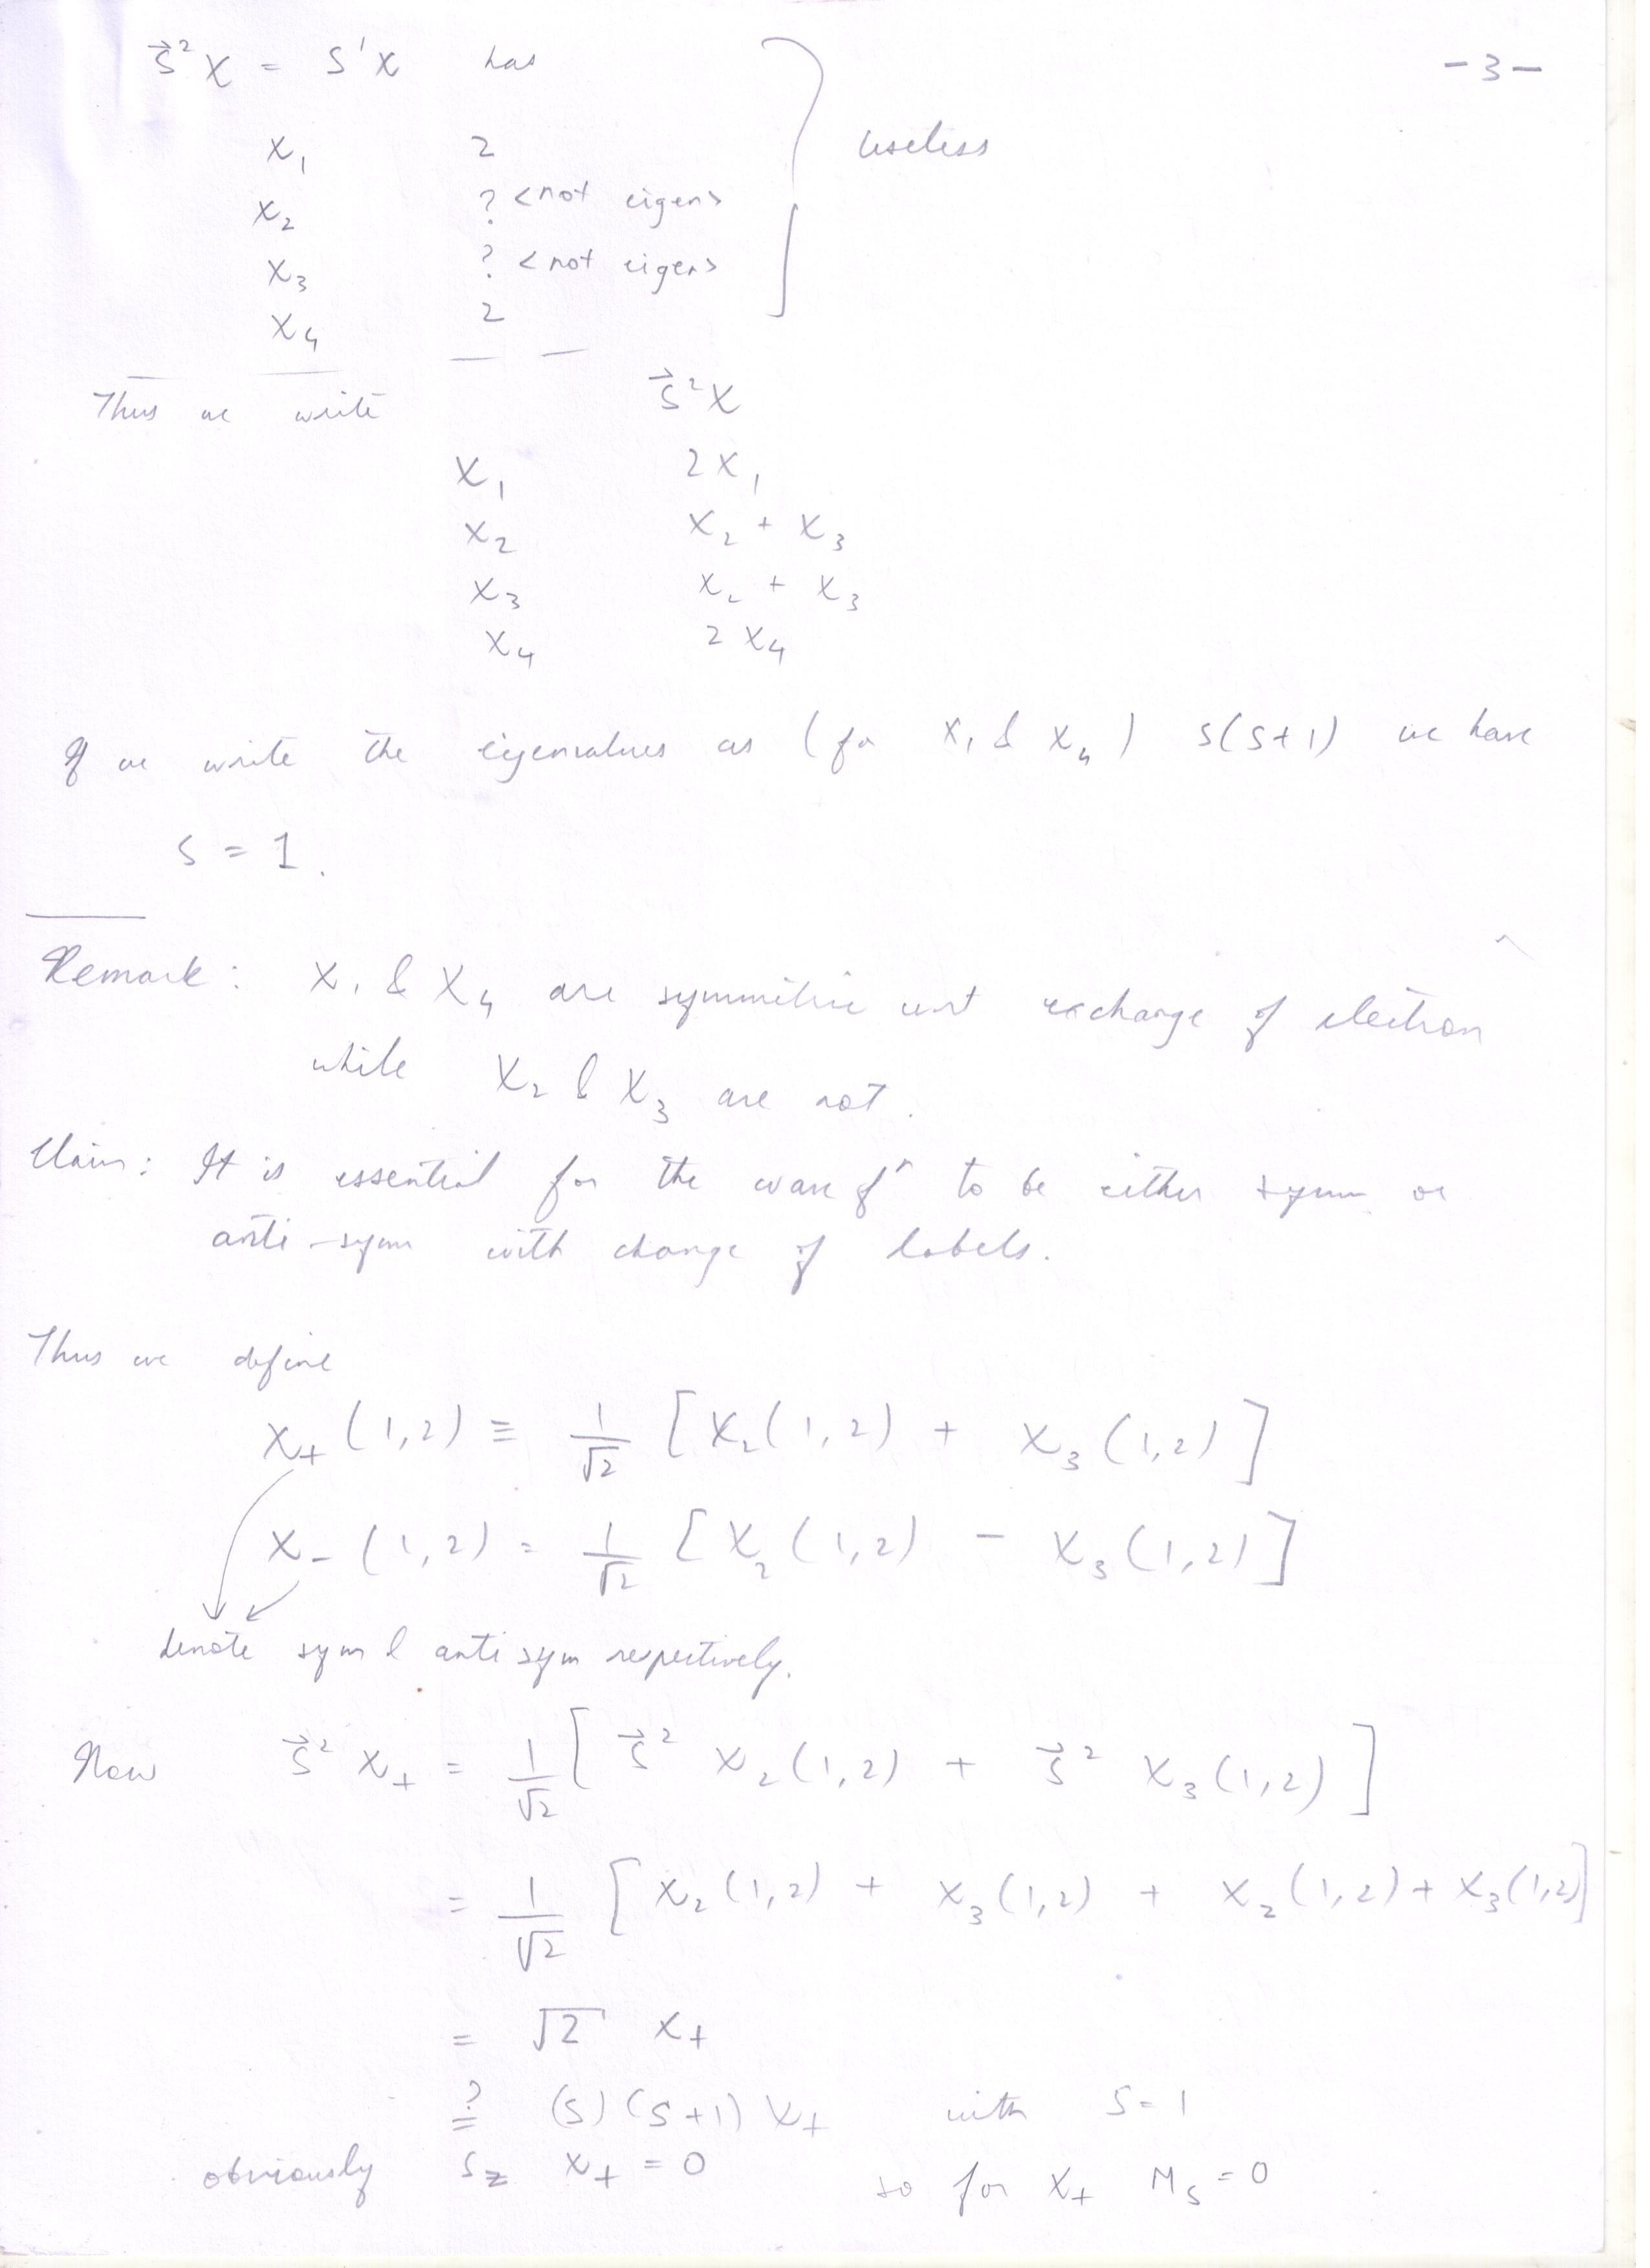 -3-
S⃗²χ = S'χ has
χ₁ 2
χ₂ ? <not eigen>
χ₃ ? <not eigen>
χ₄ 2
Useless
Thus we write S⃗²χ
χ₁ 2χ₁
χ₂ χ₂ + χ₃
χ₃ χ₂ + χ₃
χ₄ 2χ₄
If we write the eigenvalues as (for χ₁ & χ₄) s(s+1) we have
s = 1.
Remark: χ₁ & χ₄ are symmetric wrt exchange of electron
while χ₂ & χ₃ are not.
Claim: It is essential for the wave fⁿ to be either symm or
anti-symm with change of labels.
Thus we define
χ₊(1,2) ≡ 1/√2 [χ₂(1,2) + χ₃(1,2)]
χ₋(1,2) = 1/√2 [χ₂(1,2) - χ₃(1,2)]
denote sym & anti sym respectively.
Now S⃗²χ₊ = 1/√2 [S⃗² χ₂(1,2) + S⃗² χ₃(1,2)]
= 1/√2 [χ₂(1,2) + χ₃(1,2) + χ₂(1,2) + χ₃(1,2)]
= √2 χ₊
?= (s)(s+1) χ₊ with s=1
obviously S_z χ₊ = 0 so for χ₊ M_S = 0